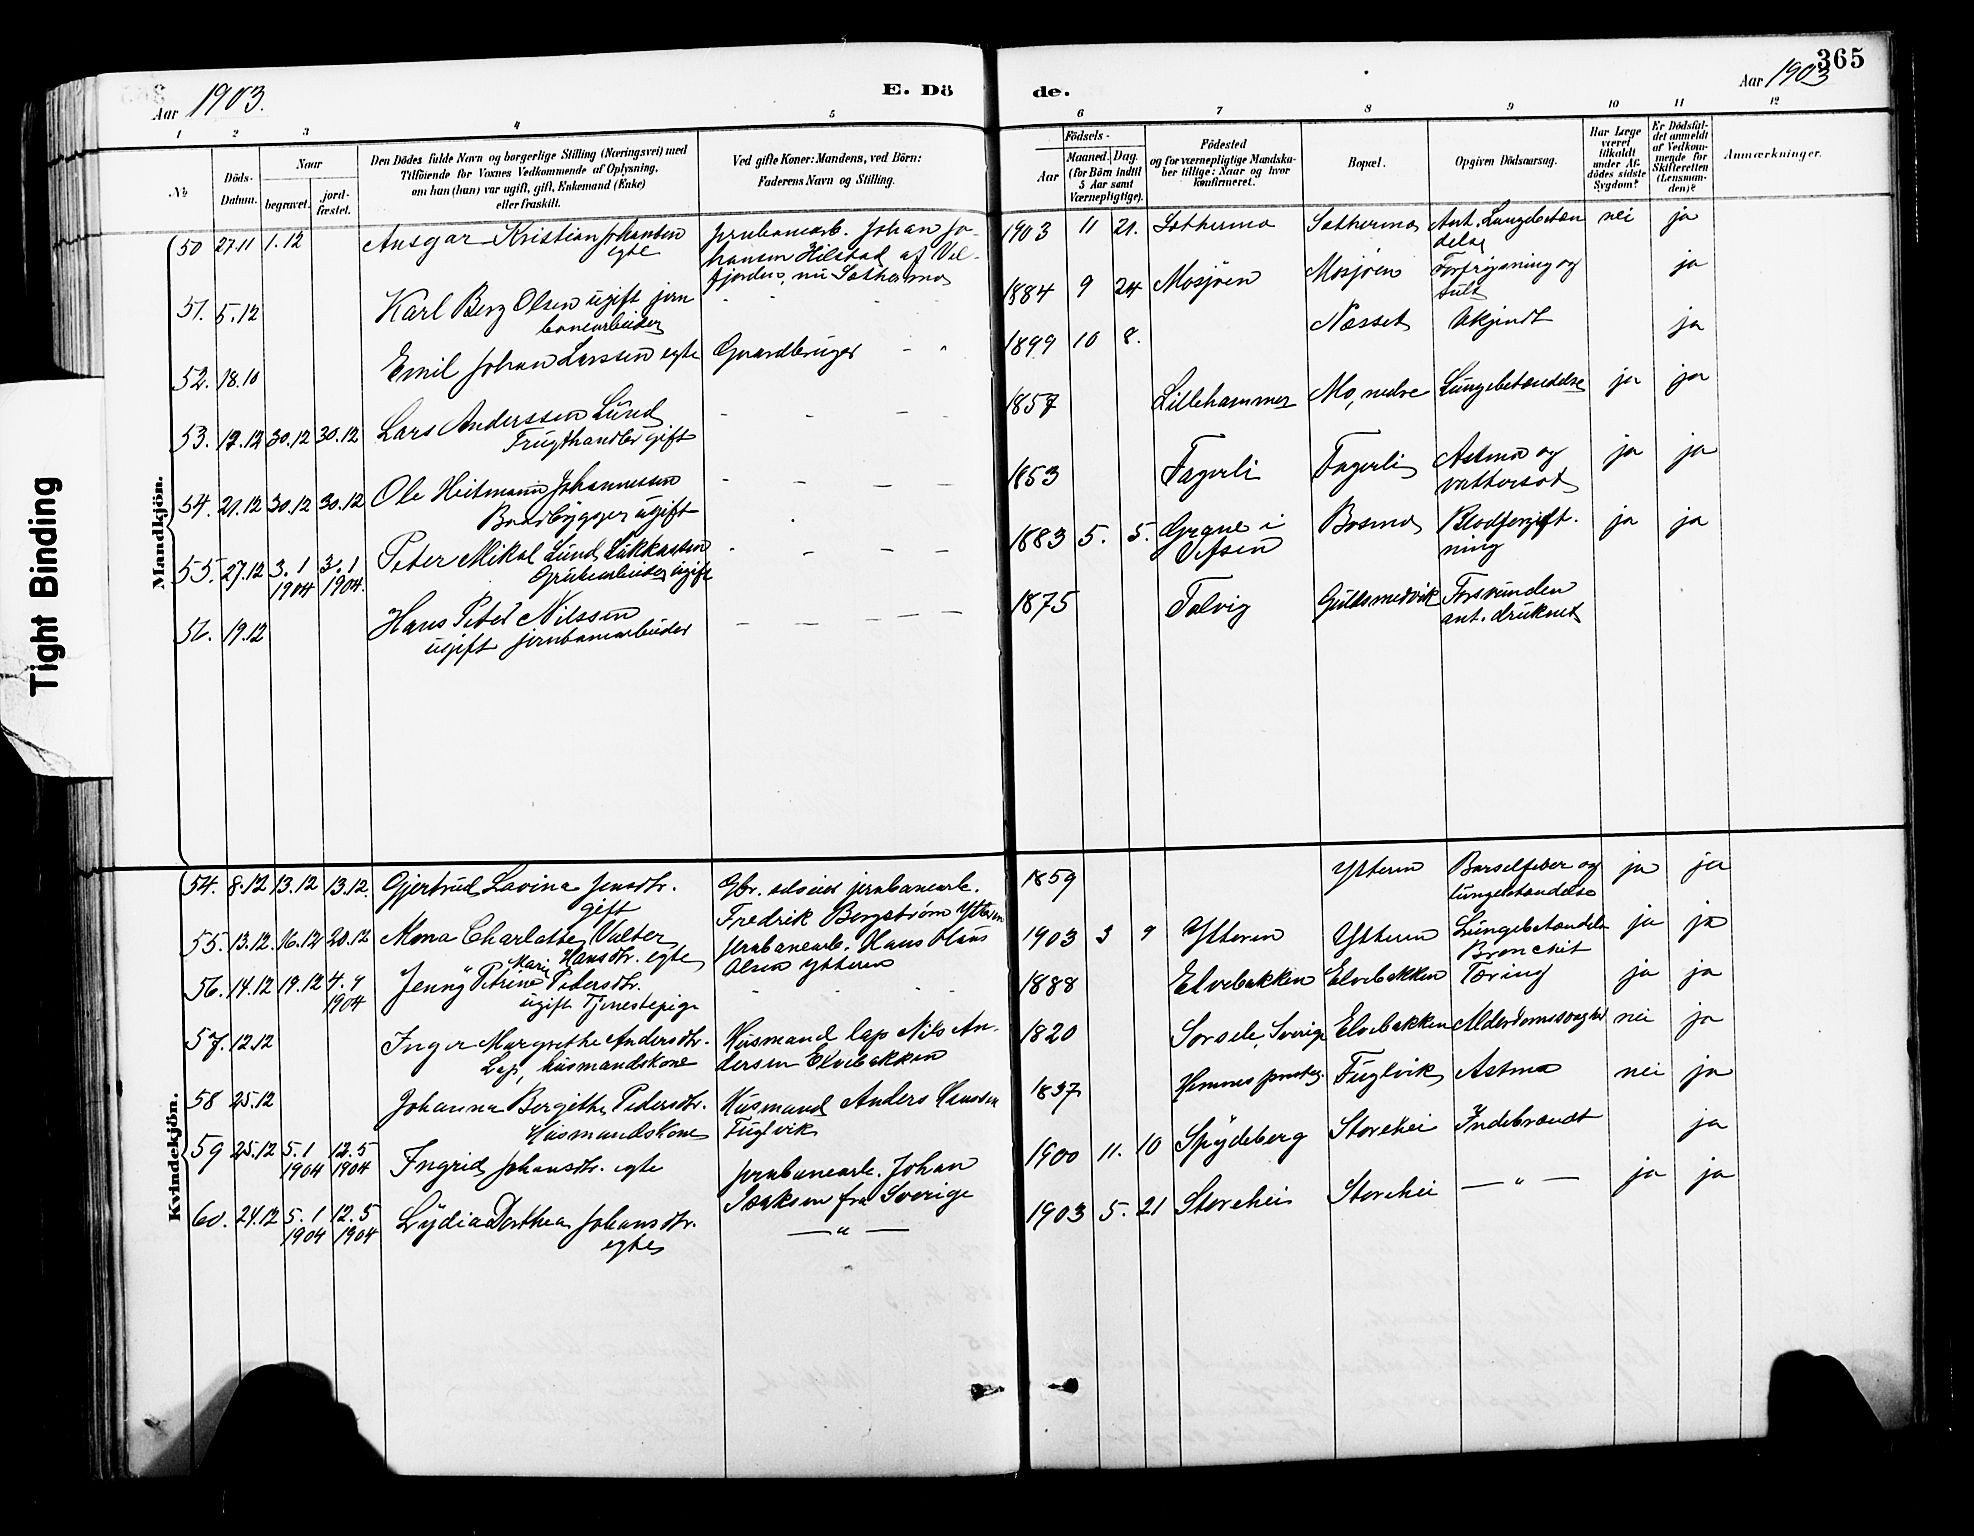 365
Aar 1903.
E. Döde.
Aar 1903
1 2 3 4 5 6 7 8 9 10 11 12
No
Döds-Datum.
Naar
begravet.
jord-fæstet.
Den Dödes fulde Navn og borgerlige Stilling (Næringsvei) med
Tilföiende for Voxnes Vedkommende af Oplysning,
om han (hun) var ugift, gift, Enkemand (Enke)
eller fraskilt.
Ved gifte Koner: Mandens, ved Börn:
Faderens Navn og Stilling.
Födsels-
Aar
Maaned. Dag.
(for Börn indtil
5 Aar samt
Værnepligtige).
Födested
og for værnepligtige Mandska-
ber tillige: Naar og hvor
konfirmeret.
Bopæl.
Opgiven Dödsaarsag.
Har Læge
været
tilkaldt
under Af-
dödes sidste
Sygdom?
Er Dödsfal-
det anmeldt
af Vedkom-
mende for
Skifteretten
(Lensman-
den)?
Anmærkninger.
Tight Binding
Mandkjön.
50 27.11 1.12 Ansgar Kristian Johansen
egte
jernbanearb. Johan Jo-
hansen Hilstad af Vel-
fjorden, nu Sæthermo
1903 11 21. Sæthermo Sæthermo Ant. Lungebetæn
delse nei ja
51. 5.12 Karl Berg Olsen ugift jern
banearbeider
1884 9 24 Mosjøen Mosjøen Forfrysning og
sult ja
52. 18.10 Emil Johan Larssen egte Gaardbruger
1899 10 8. Næsset Ukjendt ja
53. 17.12 30.12 30.12 Lars Anderssen Lund
Frugthandler gift
1857 Lillehammer Mo, nedre Lungebetændelse ja ja
54. 21.12 30.12 30.12 Ole Heitmann Johannessen
Baadbygger ugift
1853 Fagerli Fagerli Astma og
vattersot ja ja
55. 27.12 3.1 1904 3.1 1904. Peter Mikal Lund Lukkassen
Grubearbeider ugift
1883 5. 5. Grane i
Vefsen Bosmo Blodforgift-
ning ja ja
56. 19.12 Hans Peter Nilssen
ugift jernbanearbeider
1875 Talvig Guldsmedvik Forsvunden
ant. druknet
Kvindekjön.
54. 8.12 13.12 13.12. Gjertrud Lovina Jensdtr.
gift
Gbr. selveier jernbanearb.
Fredrik Bergstrøm Ytteren
1859 Ytteren Barselfeber og
lungebetændelse ja ja
55. 13.12. 16.12 20.12 Mona Charlotte Valter
Marie Hansdtr. egte
jernbanearb. Hans Olaus
Olsen Ytteren
1903 3 9 Ytteren Ytteren Lungebetændelse
Bronchit ja ja
56. 14.12 19.12 4.4 1904 "Jenny" Petrine Pedersdtr.
ugift Tjenestepige
1888 Elvebakken Elvebakken Tæring ja ja
57. 12.12 Inger Margrethe Andersdtr.
Lap, husmandskone
Husmand lap Nils An-
dersen Elvebakken
1820 Sorsele, Sverige Elvebakken Alderdomssvaghed nei ja
58 25.12 Johanna Bergithe Pedersdtr.
Husmandskone
Husmand Anders Hansen
Fuglvik
1837 Hemnes prestegj. Fuglvik Astma nei ja
59 25.12 5.1 1904 12.5 1904 Ingrid Johansdtr. egte
jernbanearb. Johan
Isaksen fra Sverige
1900 11. 10 Spydeberg Storehei Indebrændt ja
60. 24.12 5.1 1904 12.5 1904 Lydia Dorthea Johansdtr.
egte
— " —
1903 5. 21 Storehei Storehei — " — ja ja